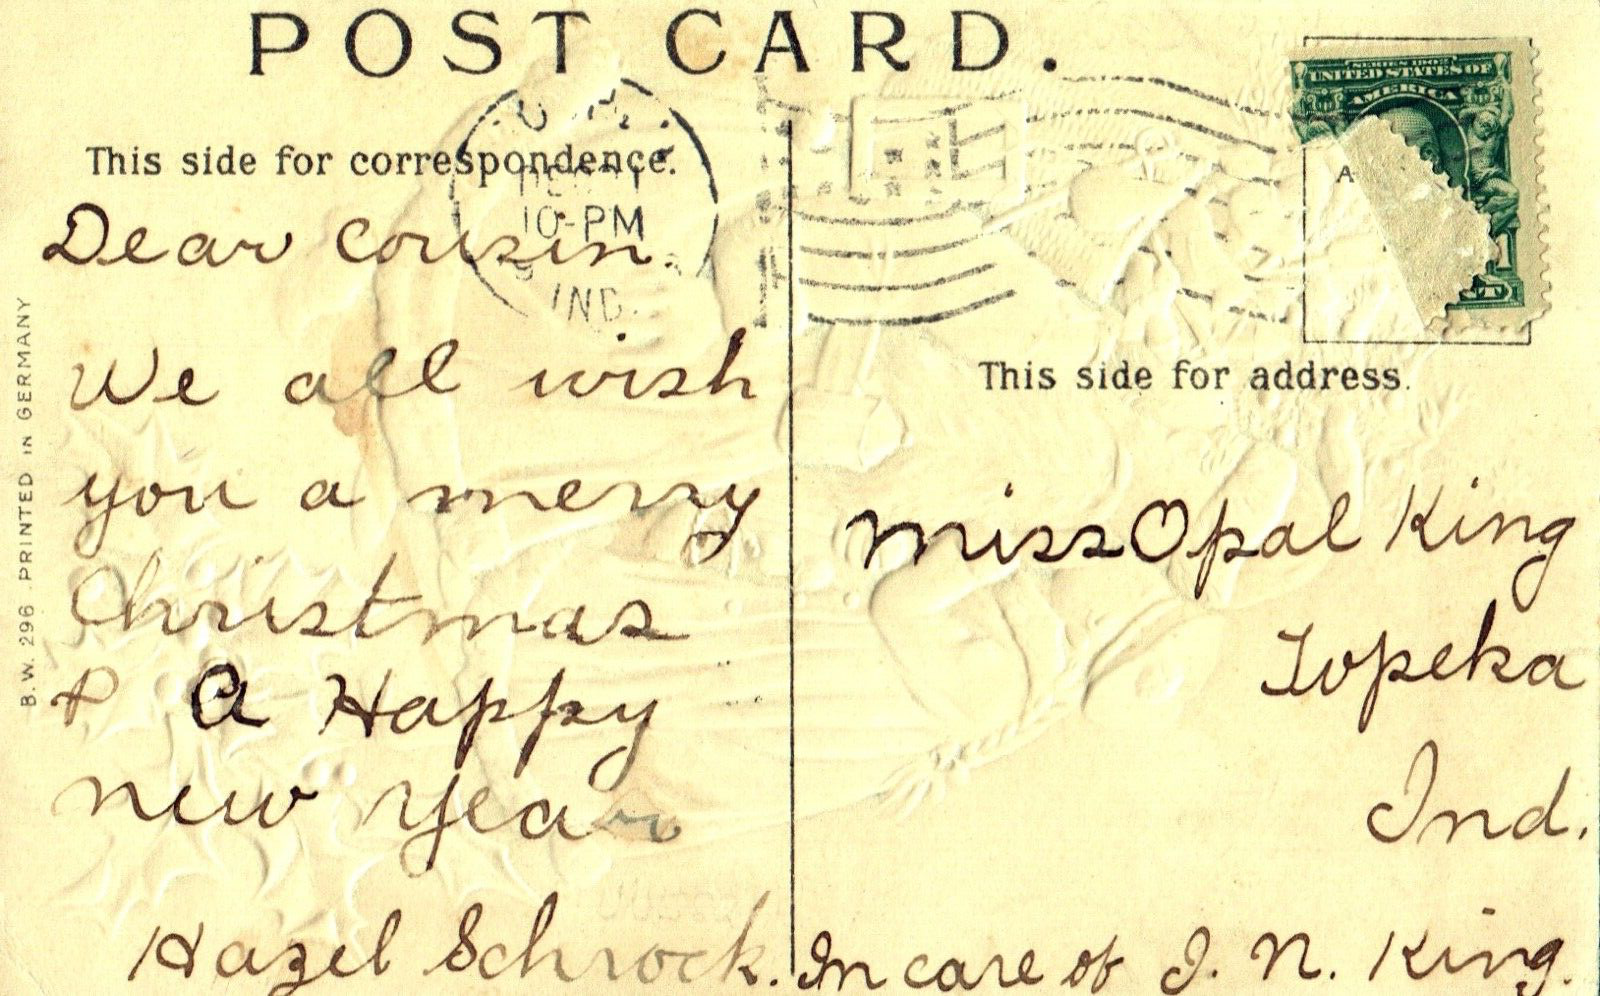 POST CARD.
This side for correspondence.
10-PM
IND.
Dear cousin.
We all wish
you a merry
Christmas
& a Happy
new year
Hazel Schrock.
B.W. 296 . PRINTED IN GERMANY
SERIES 1902
UNITED STATES OF
AMERICA
A
1
This side for address.
Miss Opal King
Topeka
Ind.
In care of J. N. King.